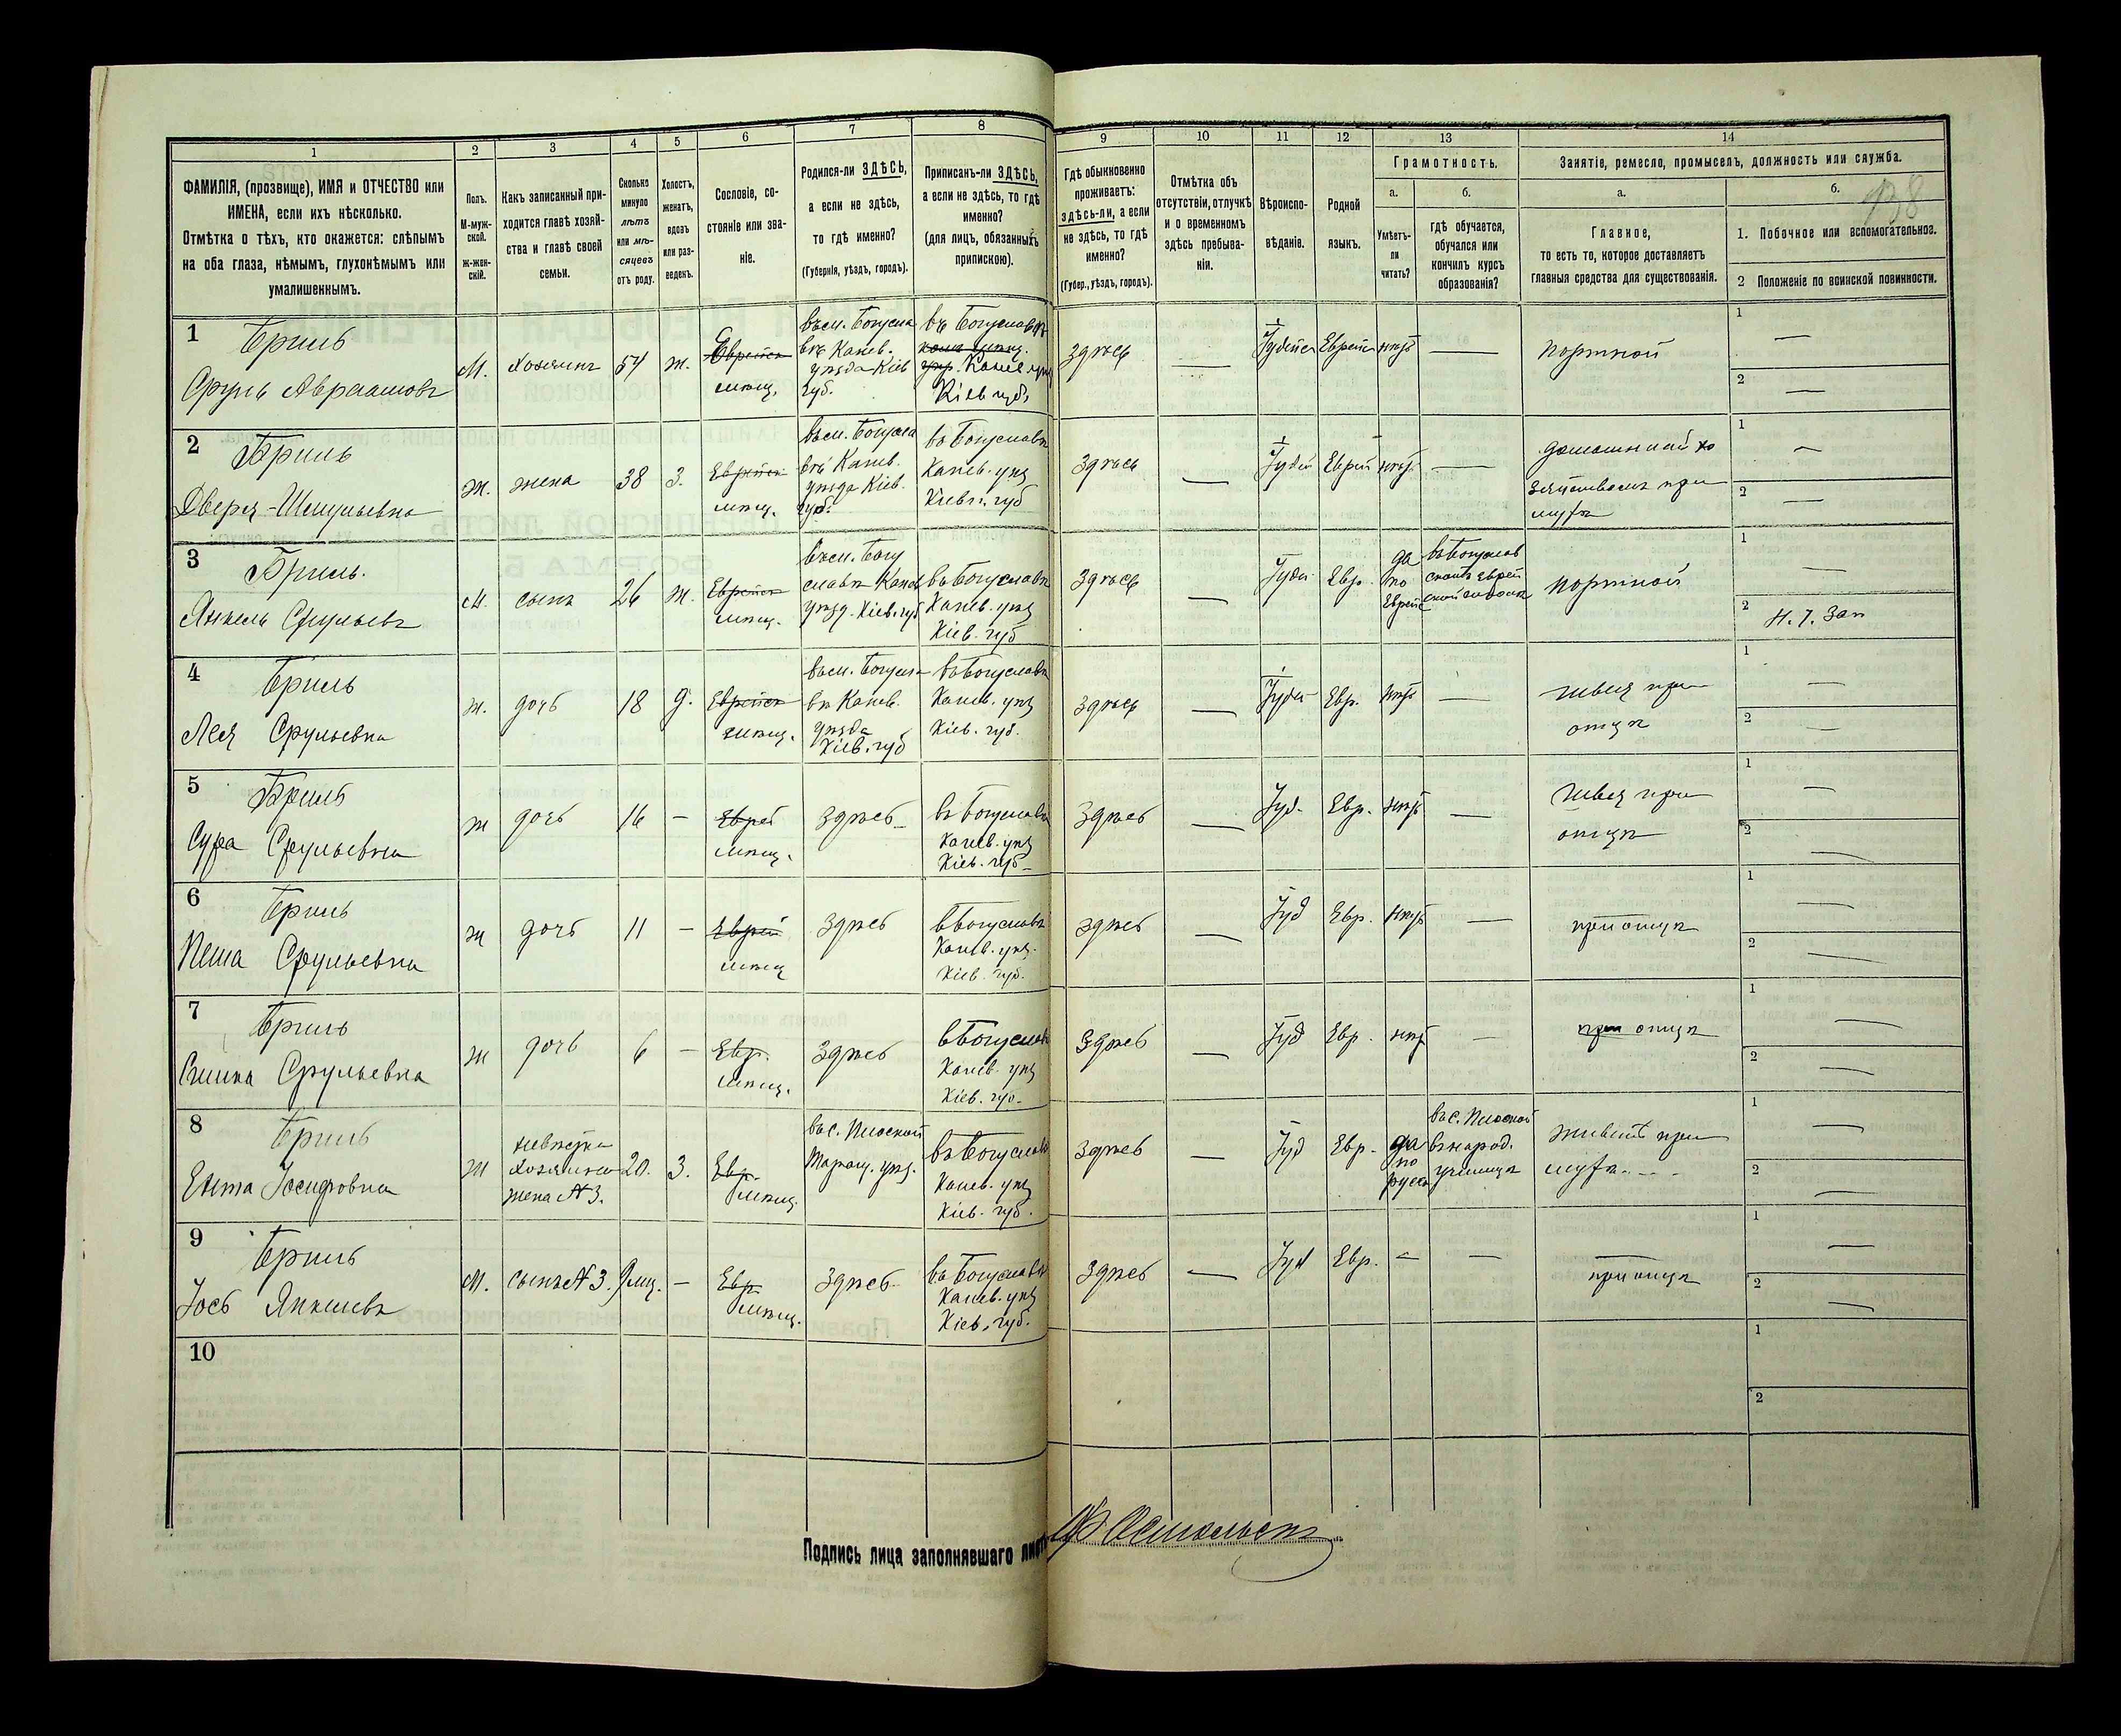 1
2
3
4
5
6
7
8
9
10
11
12
13
14
ФАМИЛІЯ, (прозвище), ИМЯ и ОТЧЕСТВО или
ИМЕНА, если ихъ нѣсколько.
Отмѣтка о тѣхъ, кто окажется: слѣпымъ
на оба глаза, нѣмымъ, глухонѣмымъ или
умалишеннымъ.
Полъ.
М-муж-
ской.
ж-жен-
скій.
Какъ записанный при-
ходится главѣ хозяй-
ства и главѣ своей
семьи.
Сколько
минуло
лѣтъ
или мѣ-
сяцевъ
отъ роду.
Холостъ,
женатъ,
вдовъ
или раз-
веденъ.
Сословіе, со-
стояніе или зва-
ніе.
Родился-ли ЗДѢСЬ,
а если не здѣсь,
то гдѣ именно?
(Губернія, уѣздъ, городъ).
Приписанъ-ли ЗДѢСЬ,
а если не здѣсь, то гдѣ
именно?
(для лицъ, обязанныхъ
припискою).
Гдѣ обыкновенно
проживаетъ:
здѣсь-ли, а если
не здѣсь, то гдѣ
именно?
(Губер., уѣздъ, городъ).
Отмѣтка объ
отсутствіи, отлучкѣ
и о временномъ
здѣсь пребыва-
ніи.
Вѣроиспо-
вѣданіе.
Родной
языкъ.
Грамотность.
а.
Умѣетъ-
ли
читать?
б.
гдѣ обучается,
обучался или
кончилъ курсъ
образованія?
Занятіе, ремесло, промыселъ, должность или служба.
а.
Главное,
то есть то, которое доставляетъ
главныя средства для существованія.
б.
1. Побочное или вспомогательное.
2 Положеніе по воинской повинности.
1
Бриль
Сруль Авраамовъ
М.
хозяинъ
54
ж.
Еврейск
мѣщ.
въ м. Богусла
вѣ Канев.
уѣзда Кіев
губ.
въ Богуславѣ
Канев. уѣз
Кіев губ.
здѣсь
—
Іудейс
Еврейс
нѣтъ
—
портной
1 —
2 —
2
Бриль
Двейра-Шмульевна
ж.
жена
38
з.
Еврейск
мѣщ.
въ м. Богусла
вѣ Канев.
уѣзда Кіев.
губ.
въ Богуславѣ
Канев. уѣз
Кіевск. губ
здѣсь
—
Іудей
Еврей
нѣтъ
—
домашный хо
зяйствомъ при
мужѣ
1 —
2 —
3
Бриль.
Янкель Срульевъ
М.
сынъ
26
ж.
Еврейск
мѣщ.
въ м. Богу
славѣ Канев
уѣзд. Кіев. губ
въ Богуславѣ
Канев. уѣз
Кіев. губ
здѣсь
—
Іудей
Евр.
да
по
Еврейс
въ Богуслав
скомъ Еврей
ской школѣ
портной
1 —
2
4
Бриль
Лея Срульевна
ж.
дочь
18
д.
Еврейск
мѣщ.
въ м. Богусла
вѣ Канев.
уѣзда
Кіев. губ
въ Богуславѣ
Канев. уѣз
Кіев. губ.
здѣсь
—
Іудей
Евр.
нѣтъ
—
швея при
отцѣ
1 —
2 —
5
Бриль
Сура Срульевна
ж
дочь
16
—
Еврей
мѣщ.
здѣсь
въ Богуславѣ
Канев. уѣз
Кіев. губ
здѣсь
—
Іуд
Евр.
нѣтъ
—
швея при
отцѣ
1 —
2 —
6
Бриль
Песша Срульевна
ж
дочь
11
—
Еврей
мѣщ
здѣсь
въ Богуславѣ
Канев. уѣз.
Кіев. губ.
здѣсь
—
Іуд
Евр.
нѣтъ
—
при отцѣ
1 —
2 —
7
Бриль
Срульевна
ж
дочь
6
—
Евр.
мѣщ.
здѣсь
въ Богуславѣ
Канев. уѣз
Кіев. губ.
здѣсь
—
Іуд
Евр.
нѣт
—
при отцѣ
1 —
2 —
8
Бриль
Ента Іосифовна
ж
невѣстка
хозяина
жена №3.
20.
з.
Евр.
мѣщ.
въ с. Плоской
Таращ. уѣз.
въ Богуславѣ
Канев. уѣз
Кіев. губ.
здѣсь
—
Іуд
Евр.
да
по
руски
въ с. Плоской
въ народ.
училищѣ
живетъ при
мужѣ
1 —
2 —
9
Бриль
Іось Янкелевъ
М.
сынъ №3.
9 мц.
—
Евр
мѣщ.
здѣсь
въ Богуславѣ
Канев. уѣз
Кіев. губ.
здѣсь
—
Іуд
Евр.
—
—
при отцѣ
1 —
2 —
10
1
2
Подпись лица заполнявшаго листъ